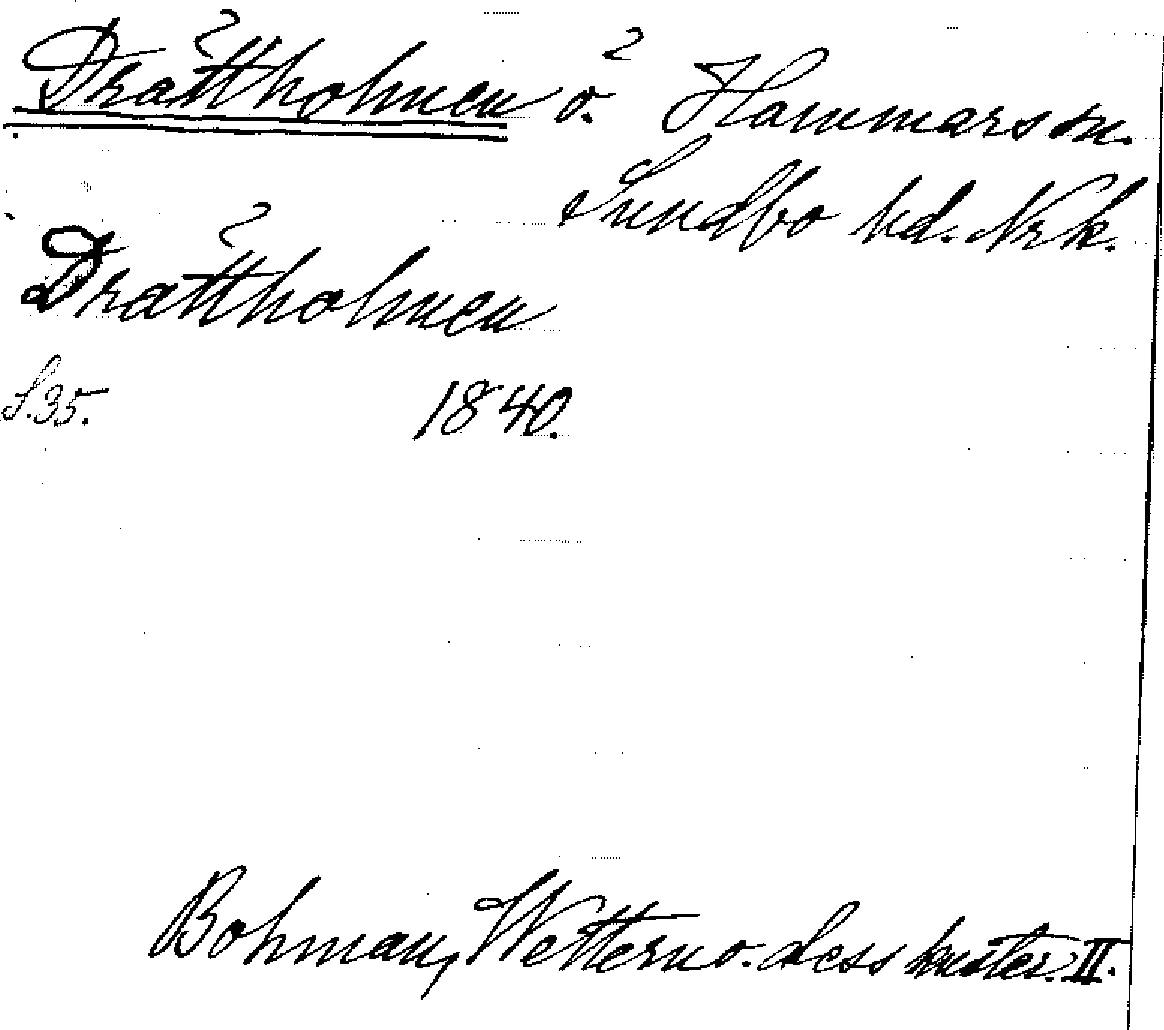 Dråttholmen ö. Hammars sn.
Sundbo hd. Nrk.
Dråttholmen
S. 35. 1840.
Bohman, Wettern o. dess kuster. II.